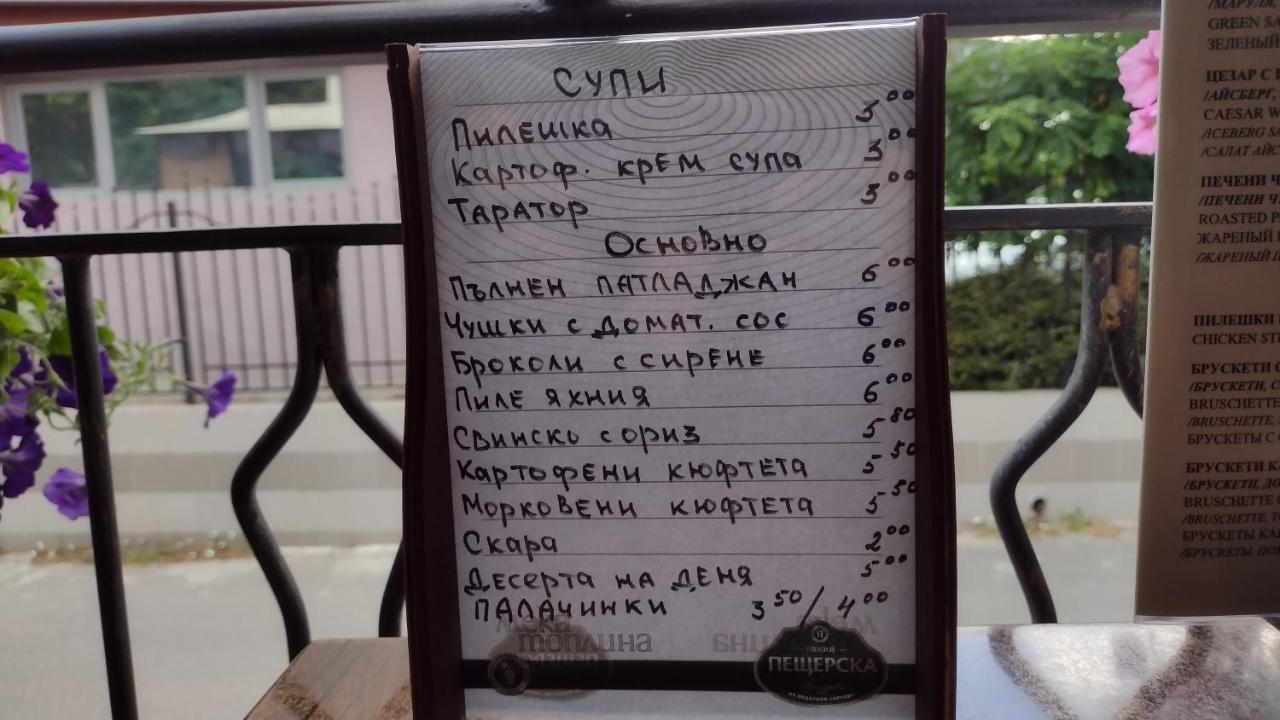 СУПИ
ПИЛЕШКА 3⁰⁰
КАРТОФ. КРЕМ СУПА 3⁰⁰
ТАРАТОР 3⁰⁰
ОСНОВНО
ПЪЛНЕН ПАТЛАДЖАН 6⁰⁰
ЧУШКИ С ДОМАТ. СОС 6⁰⁰
БРОКОЛИ С СИРЕНЕ 6⁰⁰
ПИЛЕ ЯХНИЯ 6⁰⁰
СВИНСКО С ОРИЗ 5⁸⁰
КАРТОФЕНИ КЮФТЕТА 5⁵⁰
МОРКОВЕНИ КЮФТЕТА 5⁵⁰
СКАРА 2⁰⁰
ДЕСЕРТА НА ДЕНЯ 5⁰⁰
ПАЛАЧИНКИ 3⁵⁰/4⁰⁰
топлина
РАКИЯ
ПЕЩЕРСКА
/МАРУЛЯ,
GREEN SA
ЗЕЛЕНЫЙ
ЦЕЗАР С
/АЙСБЕРГ,
CAESAR W
/ICEBERG S
/САЛАТ АЙС
ПЕЧЕНИ Ч
/ПЕЧЕНИ Ч
ROASTED
ЖАРЕНЫЙ
/ЖАРЕНЫЙ
ПИЛЕШКИ
CHICKEN ST
БРУСКЕТИ С
/БРУСКЕТИ, С
BRUSCHETTE
/BRUSCHETTE,
БРУСКЕТЫ С
БРУСКЕТИ К
/БРУСКЕТИ, ДО
BRUSCHETTE
/BRUSCHETTE, T
БРУСКЕТЫ КА
/БРУСКЕТЫ, ПО